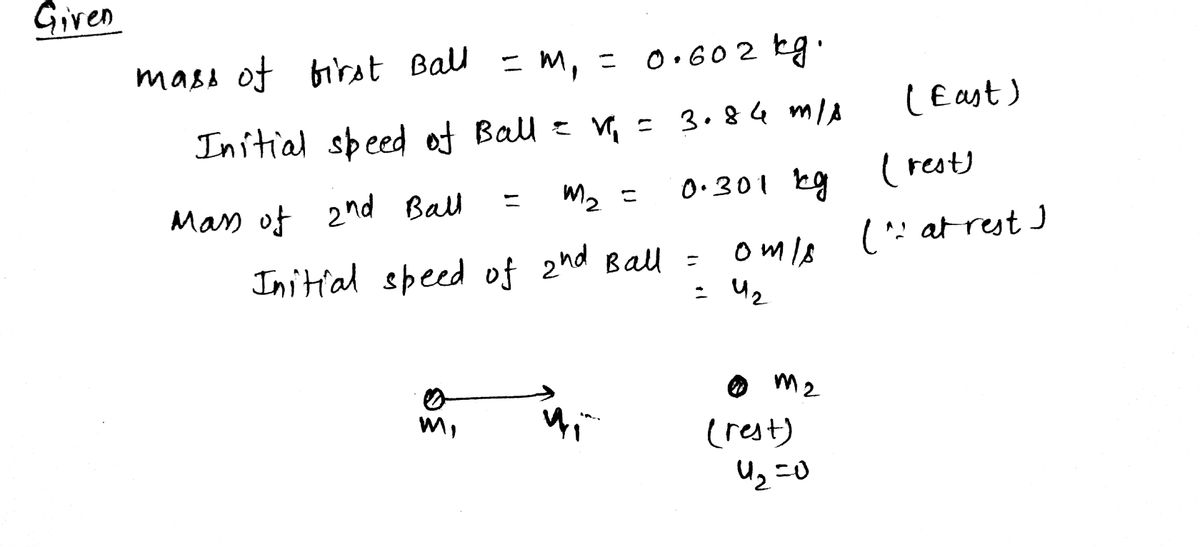 Given
mass of first Ball = m₁ = 0.602 kg.
Initial speed of Ball = u₁ = 3.84 m/s (East)
Mass of 2nd Ball = m₂ = 0.301 kg (rest)
Initial speed of 2nd Ball = 0 m/s (∵ at rest)
= u₂
m₁ u₁ m₂
(rest)
u₂=0